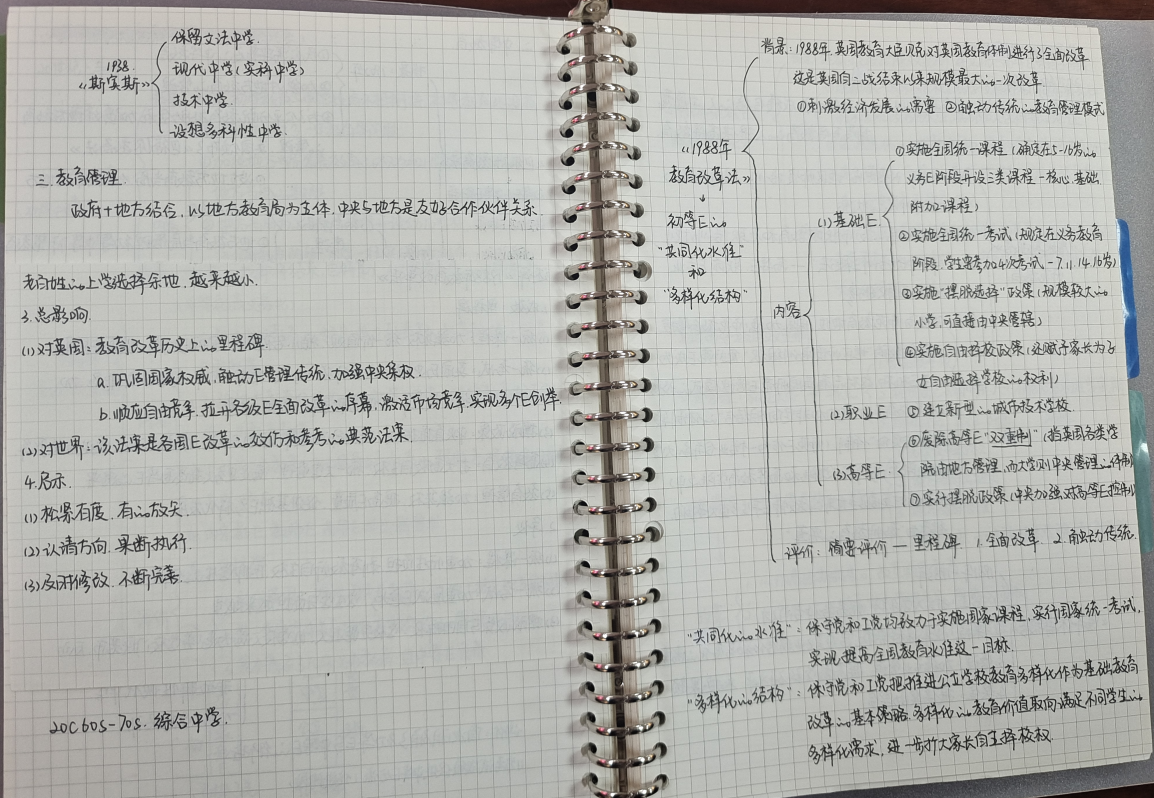 1938.
《斯宾斯》
保留文法中学.
现代中学(实科中学)
技术中学.
设想多科性中学.
三.教育管理.
政府+地方结合,以地方教育局为主体,中央与地方是友好合作伙伴关系.
老百姓的上学选择余地,越来越小.
3.总影响.
(1)对英国:教育改革历史上的里程碑.
a.巩固国家权威,触动E管理传统,加强中央集权.
b.顺应自由竞争,拉开各级E全面改革的序幕,激活市场竞争,实现多个E创举.
(2)对世界:该法案是各国E改革的效仿和参考的典范法案.
4.启示.
(1)松紧有度,有的放矢.
(2)认清方向,果断执行.
(3)及时修改,不断完善.
20C60s-70s.综合中学.
《1988年
教育改革法》
初等E的
"共同化水准"
和
"多样化结构"
背景:1988年,英国教育大臣贝克对英国教育体制进行了全面改革
这是英国自二战结束以来规模最大的一次改革
①刺激经济发展的需要 ②触动传统的教育管理模式
内容
(1)基础E
①实施全国统一课程(确定在5-16岁的
义务E阶段开设三类课程—核心.基础.
附加课程)
②实施全国统一考试(规定在义务教育
阶段,学生要参加4次考试—7.11.14.16岁)
③实施"摆脱选择"政策(规模较大的
小学,可直接由中央管辖)
④实施自由择校政策(还赋予家长为子
女自由选择学校的权利)
(2)职业E ⑤建立新型的城市技术学校.
(3)高等E
⑥废除高等E"双重制"(指英国各类学
院由地方管理,而大学则中央管理的体制)
⑦实行摆脱政策(中央加强对高等E控制)
评价:简要评价—里程碑 1.全面改革 2.触动传统.
"共同化的水准":保守党和工党均致力于实施国家课程,实行国家统一考试,
实现提高全国教育水准这一目标.
"多样化的结构":保守党和工党把推进公立学校教育多样化作为基础教育
改革的基本策略,多样化的教育价值取向,满足不同学生的
多样化需求,进一步扩大家长自主择校权.